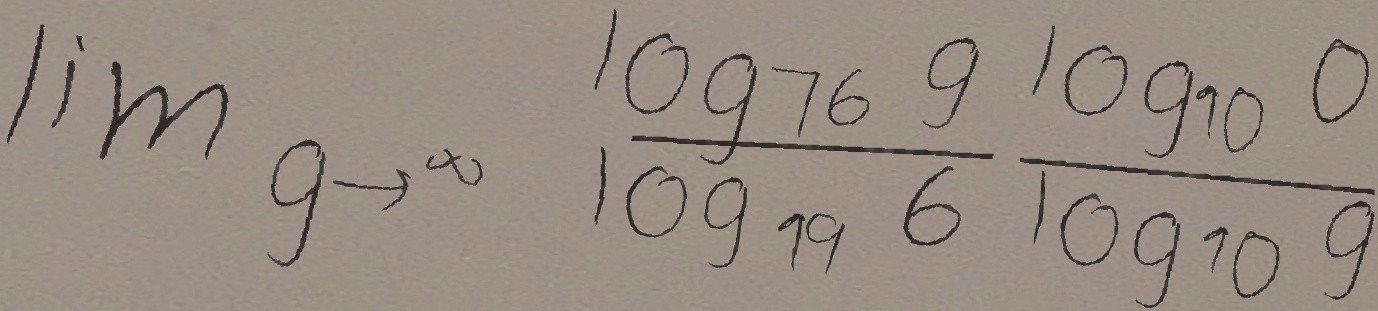 \lim_{g \to \infty} \frac{\log_{76} g}{\log_{19} 6} \frac{\log_{10} 0}{\log_{10} g}